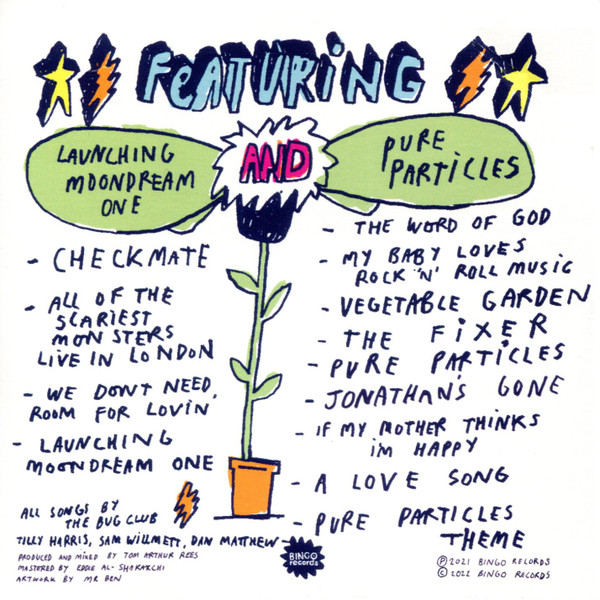 FEATURING
LAUNCHING
MOONDREAM
ONE
AND
PURE
PARTICLES
- CHECKMATE
- ALL OF THE
SCARIEST
MONSTERS
LIVE IN LONDON
- WE DONT NEED
ROOM FOR LOVIN'
- LAUNCHING
MOONDREAM ONE
- THE WORD OF GOD
- MY BABY LOVES
ROCK 'N' ROLL MUSIC
- VEGETABLE GARDEN
- THE FiXER
- PURE PARTICLES
- JONATHAN'S GONE
- IF MY MOTHER THINKS
i'm HAPPY
- A LOVE SONG
- PURE PARTICLES
THEME
ALL SONGS BY
THE BUG CLUB
TILLY HARRIS, SAM WILLMETT, DAN MATTHEW
PRODUCED AND MIXED BY TOM ARTHUR REES
MASTERED BY EDDIE AL-SHAKARCHI
ARTWORK BY MR BEN
BINGO
records
Ⓟ 2021 BINGO RECORDS
© 2022 BINGO RECORDS